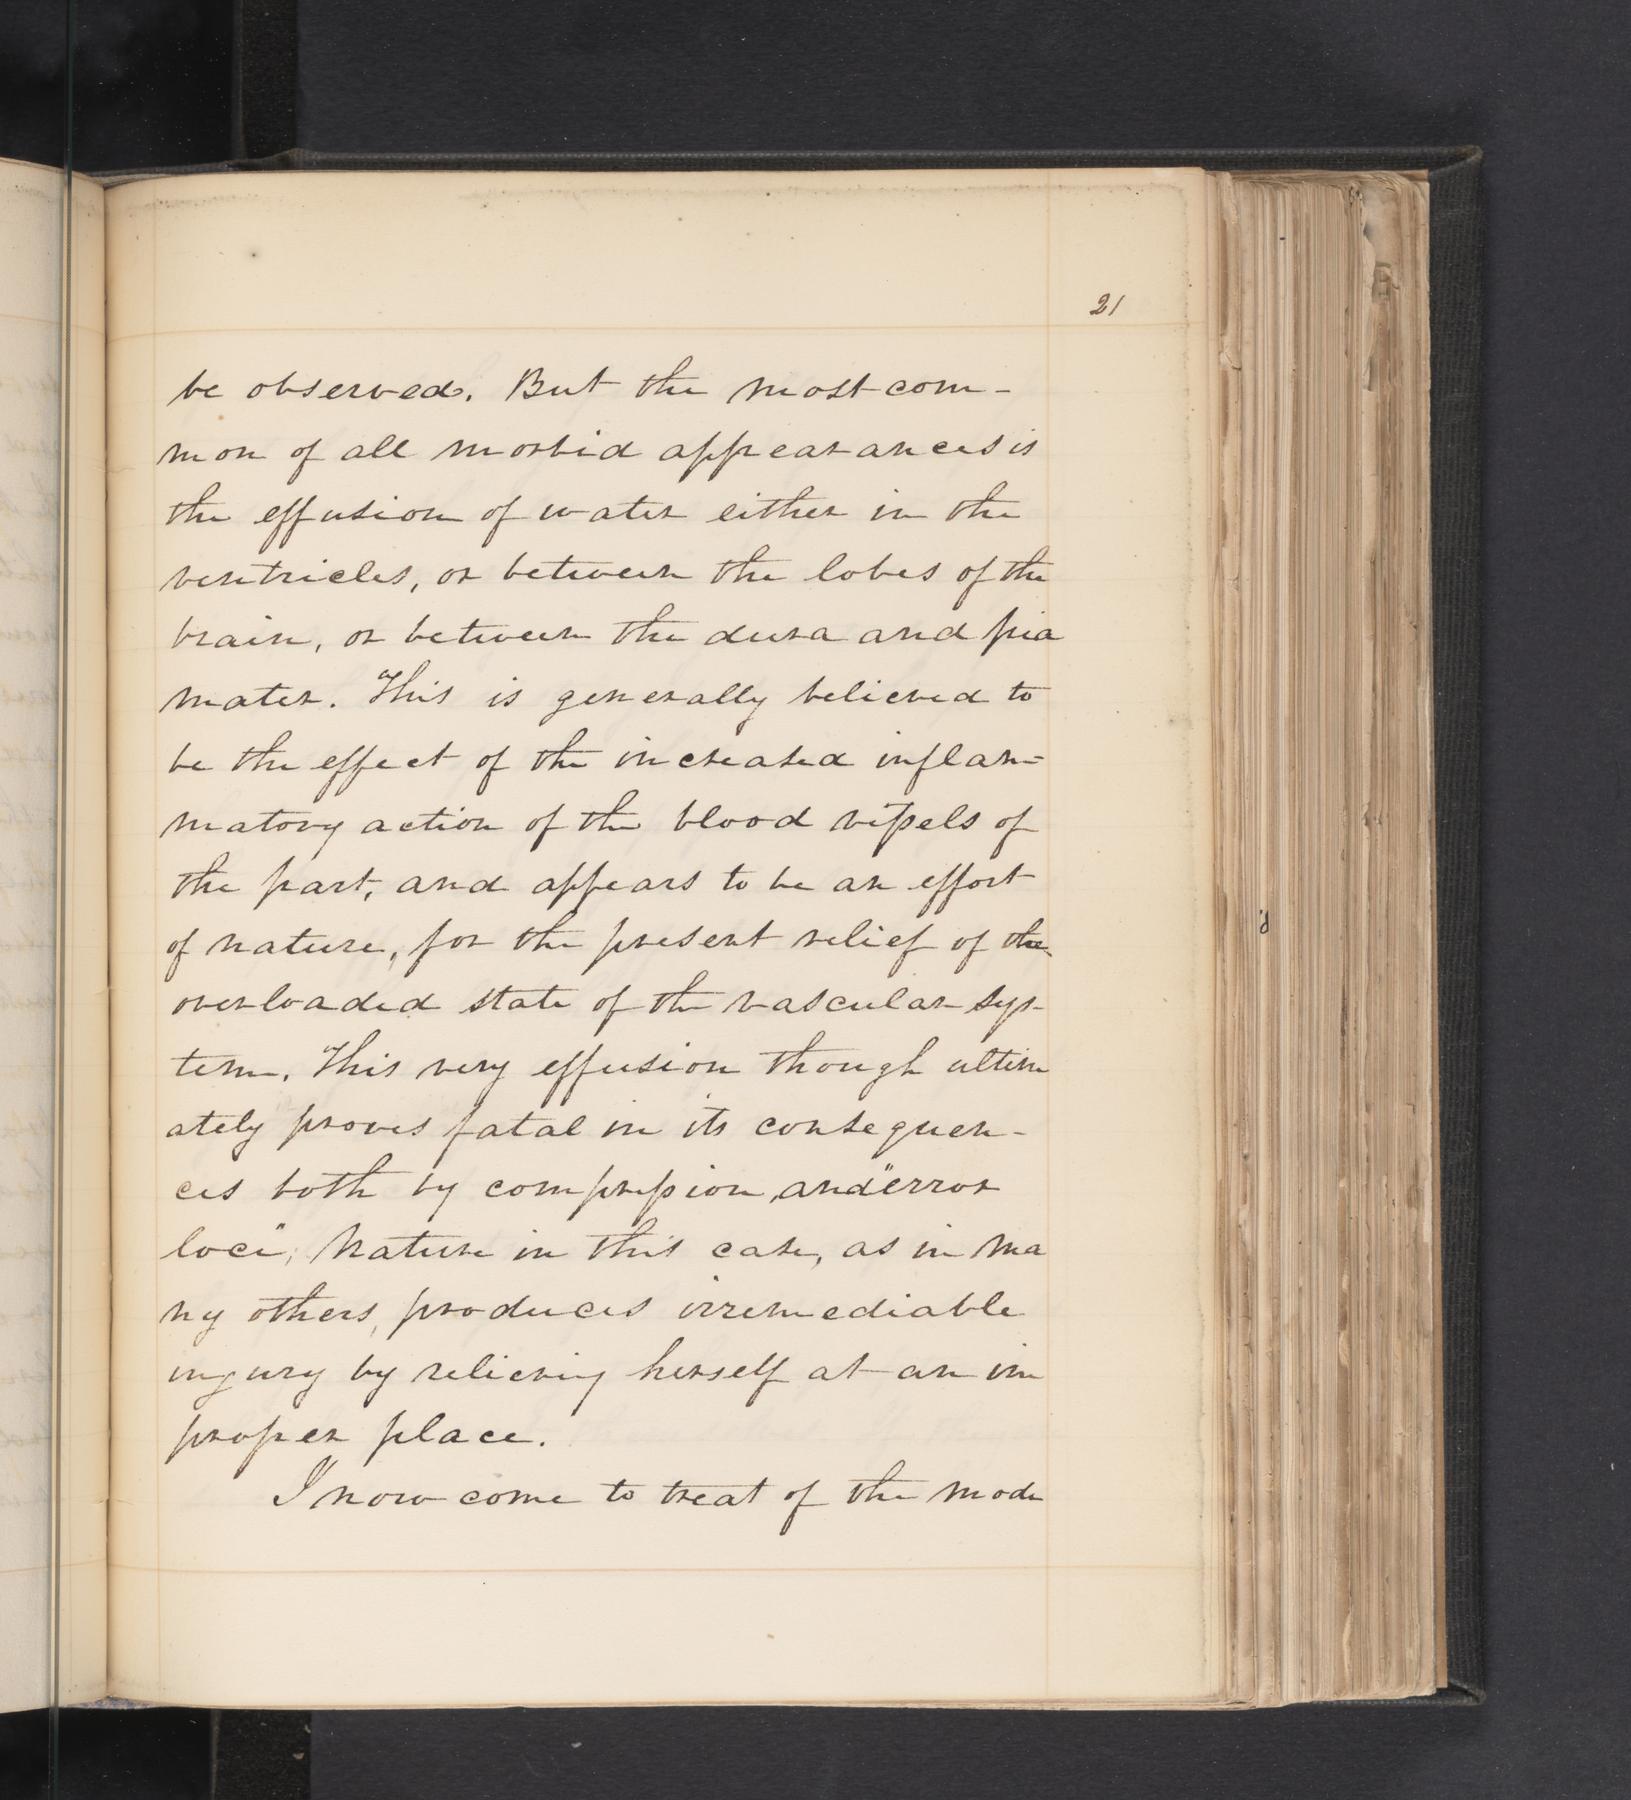 21
be observed. But the most com-
mon of all morbid appearances is
the effusion of water either in the
ventricles, or between the lobes of the
brain, or between the dura and pia
mater. This is generally believed to
be the effect of the increased inflam-
matory action of the blood vessels of
the part, and appears to be an effort
of nature, for the present relief of the
overloaded state of the vascular sys-
tem. This very effusion though ultim
ately proves fatal in its consequen-
ces both by compression, and "error
loci", Nature in this case, as in ma
ny others, produces irremediable
injury by relieving herself at an im
proper place.
I now come to treat of the mode